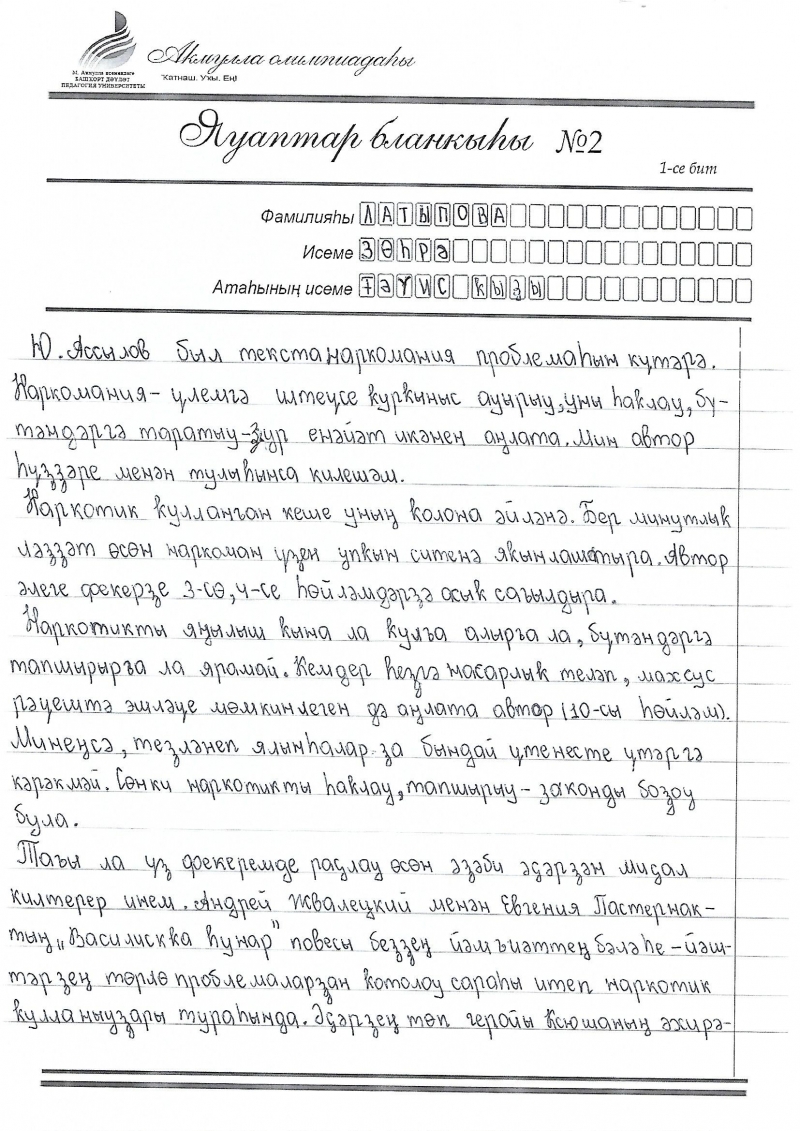 М. Акмулла исемендәге
БАШҠОРТ ДӘҮЛӘТ
ПЕДАГОГИЯ УНИВЕРСИТЕТЫ
Акмулла олимпиадаһы
Ҡатнаш. Уҡы. Ең!
Яуаптар бланкыһы №2
1-се бит
Фамилияһы ЛАТЫПОВА
Исеме ЗӨҺРӘ
Атаһының исеме ҒӘҮИС ҠЫҘЫ
Ю. Ассылов был текста наркомания проблемаһын күтәрә.
Наркомания – үлемгә илтеүсе ҡурҡыныс ауырыу, уны һаҡлау, бү-
тәндәргә таратыу – ҙур енәйәт икәнен аңлата. Мин автор
һүҙҙәре менән тулыһынса килешәм.
Наркотик ҡулланған кеше уның ҡолона әйләнә. Бер минутлыҡ
ләззәт өсөн наркоман үҙен упҡын ситенә яҡынлаштыра. Автор
әлеге фекерҙе 3-сө, 4-се һөйләмдәрҙә асыҡ сағылдыра.
Наркотикты яңылыш ҡына ла ҡулға алырға ла, бүтәндәргә
тапшырырға ла ярамай. Кемдер һеҙгә насарлыҡ теләп, махсус
рәүештә эшләүе мөмкинлеген дә аңлата автор (10-сы һөйләм).
Минеңсә, теҙләнеп ялынһалар ҙа бындай үтенесте үтәргә
кәрәкмәй. Сөнки наркотикты һаҡлау, тапшырыу – законды боҙоу
була.
Тағы ла үҙ фекеремде раҫлау өсөн әҙәби әҫәрҙән миҫал
килтерер инем. Андрей Жвалецкий менән Евгения Пастернак-
тың „Василискка һунар" повесы беҙҙең йәмғиәттең бәләһе – йәш-
тәрҙең төрлө проблемаларҙан ҡотолоу сараһы итеп наркотик
ҡулланыуҙары тураһында. Әҫәрҙең төп геройы Ксюшаның әхирә-